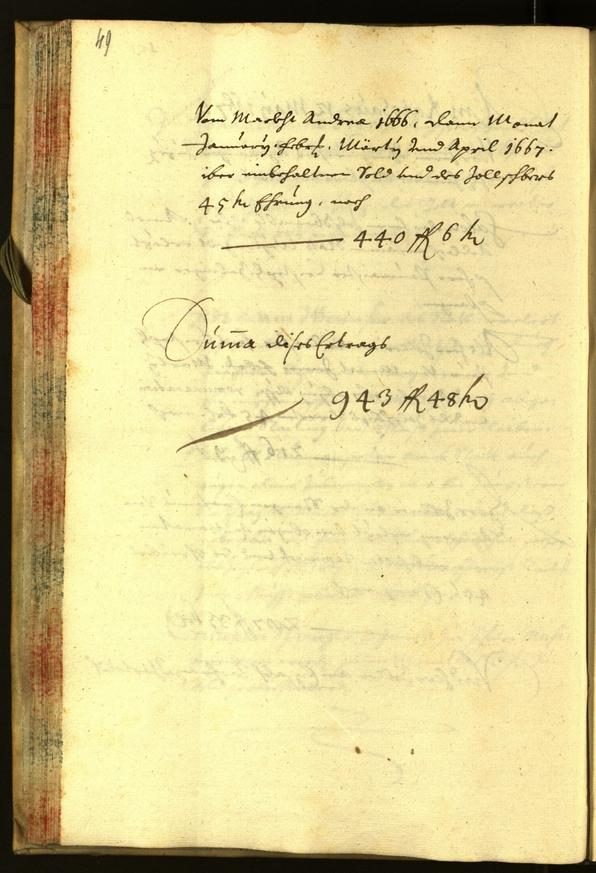 49
Vom Marckht Andree 1666. dann Monat
January. Febr. Marty und April 1667.
über einbehaltnen Sold und des Zollschbers
45 kr Ehrung. noch
440 fl 6 kr
Suma dises Ertrags
943 fl 48 kr